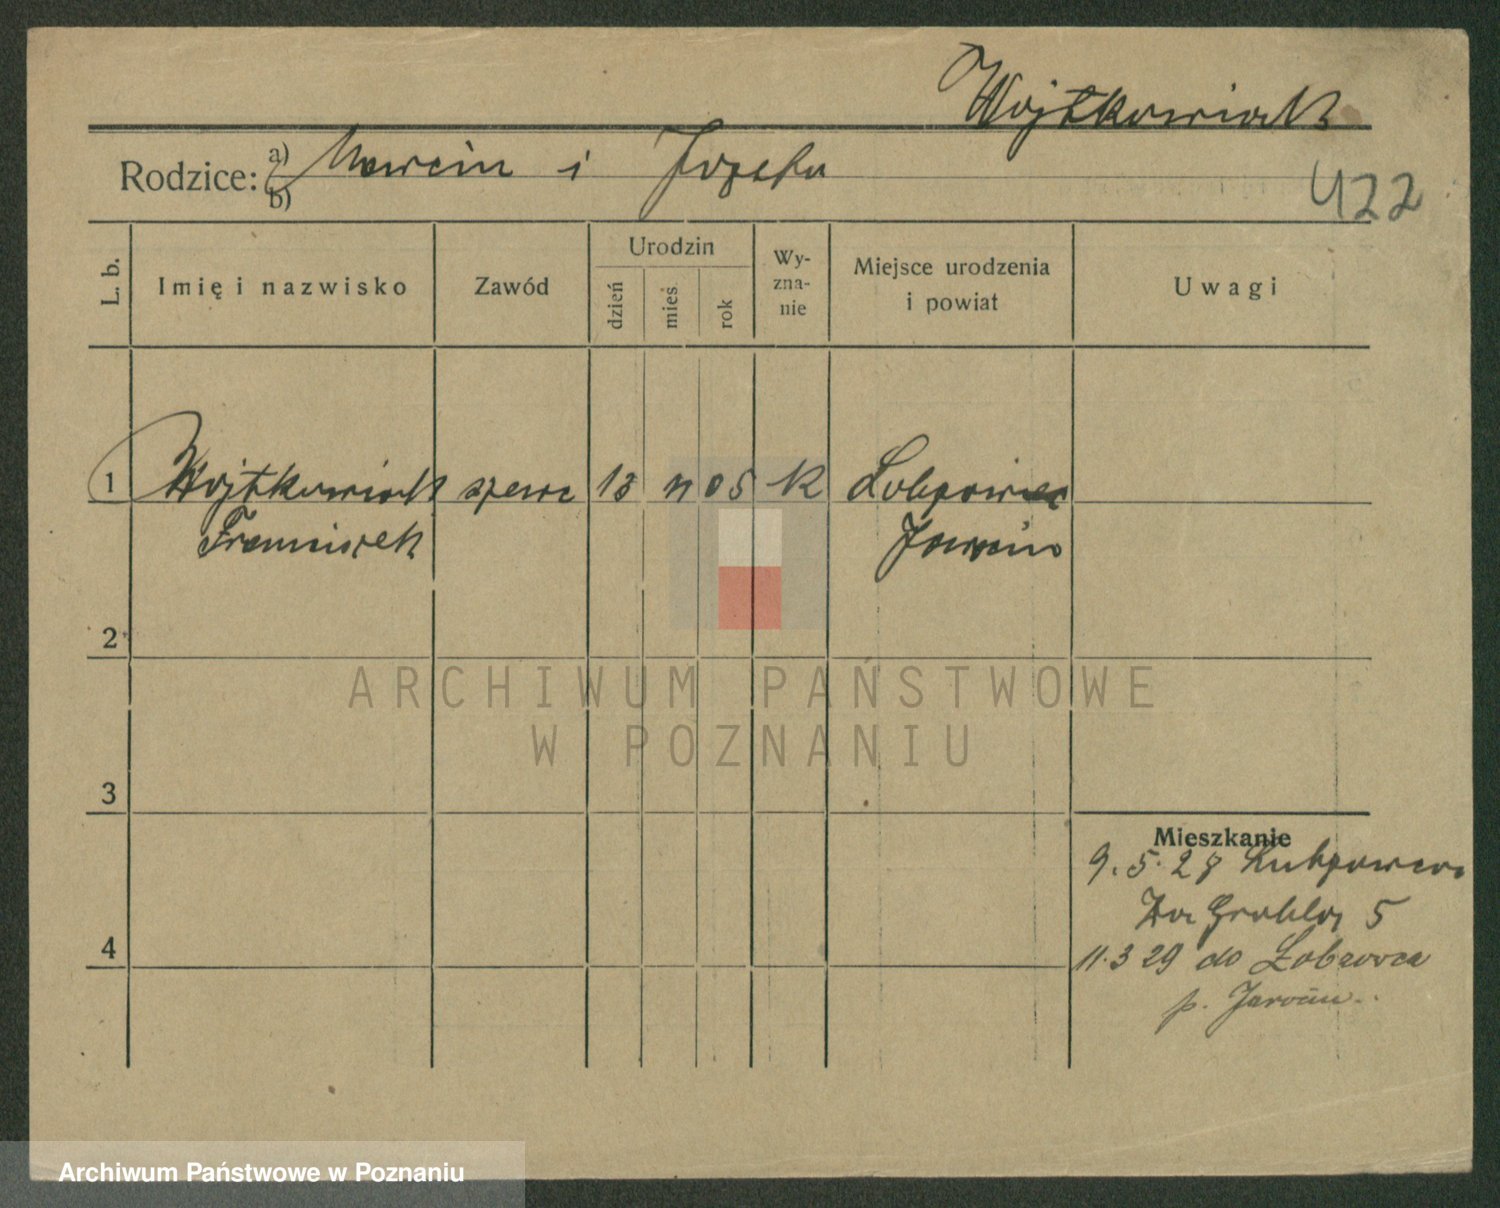 Wojtkowiak
Rodzice: a) b) Marcin i Józefa
422
L. b.
Imię i nazwisko
Zawód
Urodzin
dzień
mies
rok
Wy-
zna-
nie
Miejsce urodzenia
i powiat
Uwagi
1 Wojtkowiak szewc 13 11 05 K
Franciszek Jarocin
2
3
4
Mieszkanie
9.5.28
Na Grobli 5
11.3 29 do
p. Jarocin
ARCHIWUM PAŃSTWOWE
W POZNANIU
Archiwum Państwowe w Poznaniu